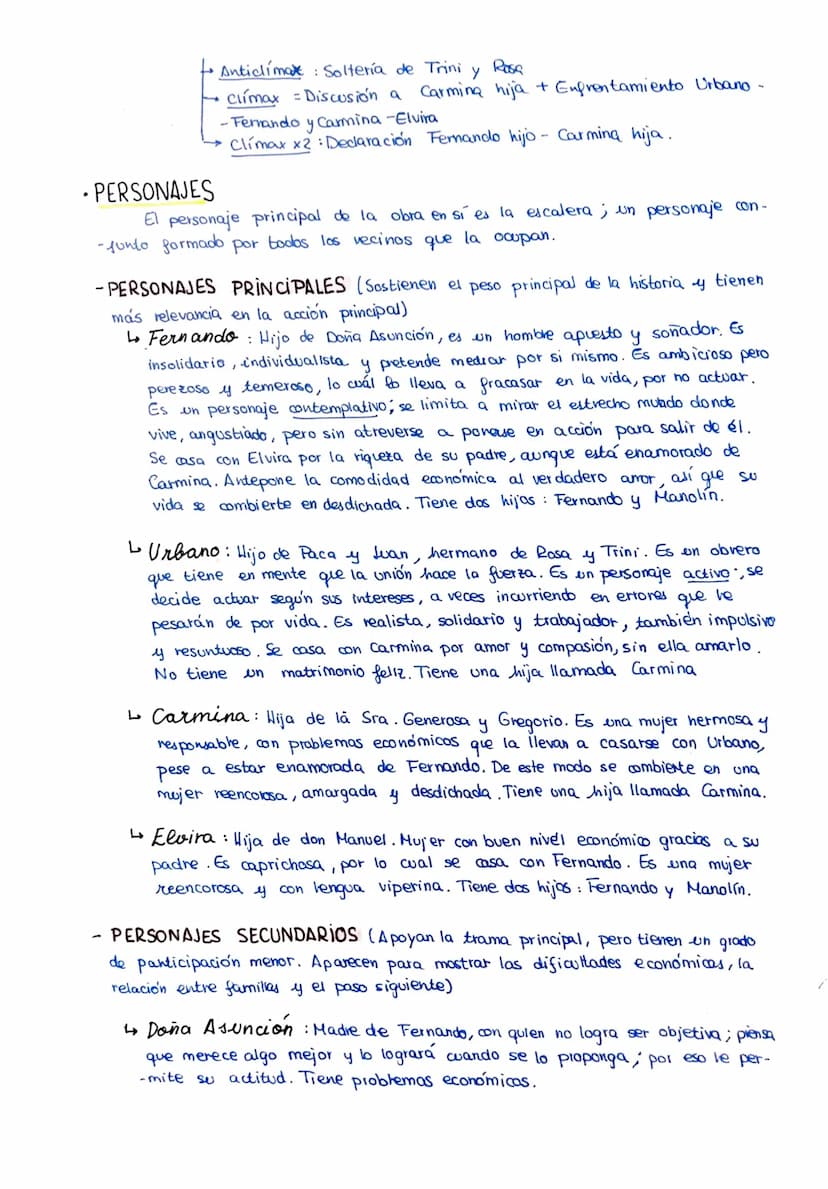 → Anticlímax : Soltería de Trini y Rosa
→ Clímax = Discusión a Carmina hija + Enfrentamiento Urbano -
- Fernando y Carmina - Elvira
→ Clímax x2 : Declaración Fernando hijo - Carmina hija.
· PERSONAJES
El personaje principal de la obra en sí es la escalera ; un personaje con-
-junto formado por todos los vecinos que la ocupan.
- PERSONAJES PRINCIPALES (Sostienen el peso principal de la historia y tienen
más relevancia en la acción principal)
↳ Fernando : Hijo de Doña Asunción, es un hombre apuesto y soñador. Es
insolidario, individualista y pretende medrar por si mismo. Es ambicioso pero
perezoso y temeroso, lo cuál lo lleva a fracasar en la vida, por no actuar.
Es un personaje contemplativo; se limita a mirar el estrecho mundo donde
vive, angustiado, pero sin atreverse a ponerse en acción para salir de él.
Se casa con Elvira por la riqueza de su padre, aunque está enamorado de
Carmina. Antepone la comodidad económica al verdadero amor, así que su
vida se combierte en desdichada. Tiene dos hijos : Fernando y Manolín.
↳ Urbano : Hijo de Paca y Juan, hermano de Rosa y Trini. Es un obrero
que tiene en mente que la unión hace la fuerza. Es un personaje activo ; se
decide actuar según sus intereses, a veces incurriendo en errores que le
pesarán de por vida. Es realista, solidario y trabajador, también impulsivo
y resuntuoso. Se casa con Carmina por amor y compasión, sin ella amarlo.
No tiene un matrimonio feliz. Tiene una hija llamada Carmina
↳ Carmina : Hija de la Sra. Generosa y Gregorio. Es una mujer hermosa y
responsable, con problemas económicos que la llevan a casarse con Urbano,
pese a estar enamorada de Fernando. De este modo se combierte en una
mujer reencorosa, amargada y desdichada. Tiene una hija llamada Carmina.
↳ Elvira : Hija de don Manuel. Mujer con buen nivel económico gracias a su
padre. Es caprichosa, por lo cual se casa con Fernando. Es una mujer
reencorosa y con lengua viperina. Tiene dos hijos : Fernando y Manolín.
- PERSONAJES SECUNDARIOS (Apoyan la trama principal, pero tienen un grado
de participación menor. Aparecen para mostrar las dificultades económicas, la
relación entre familias y el paso siguiente)
↳ Doña Asunción : Madre de Fernando, con quien no logra ser objetiva ; piensa
que merece algo mejor y lo logrará cuando se lo proponga ; por eso le per-
-mite su actitud. Tiene problemas económicos.